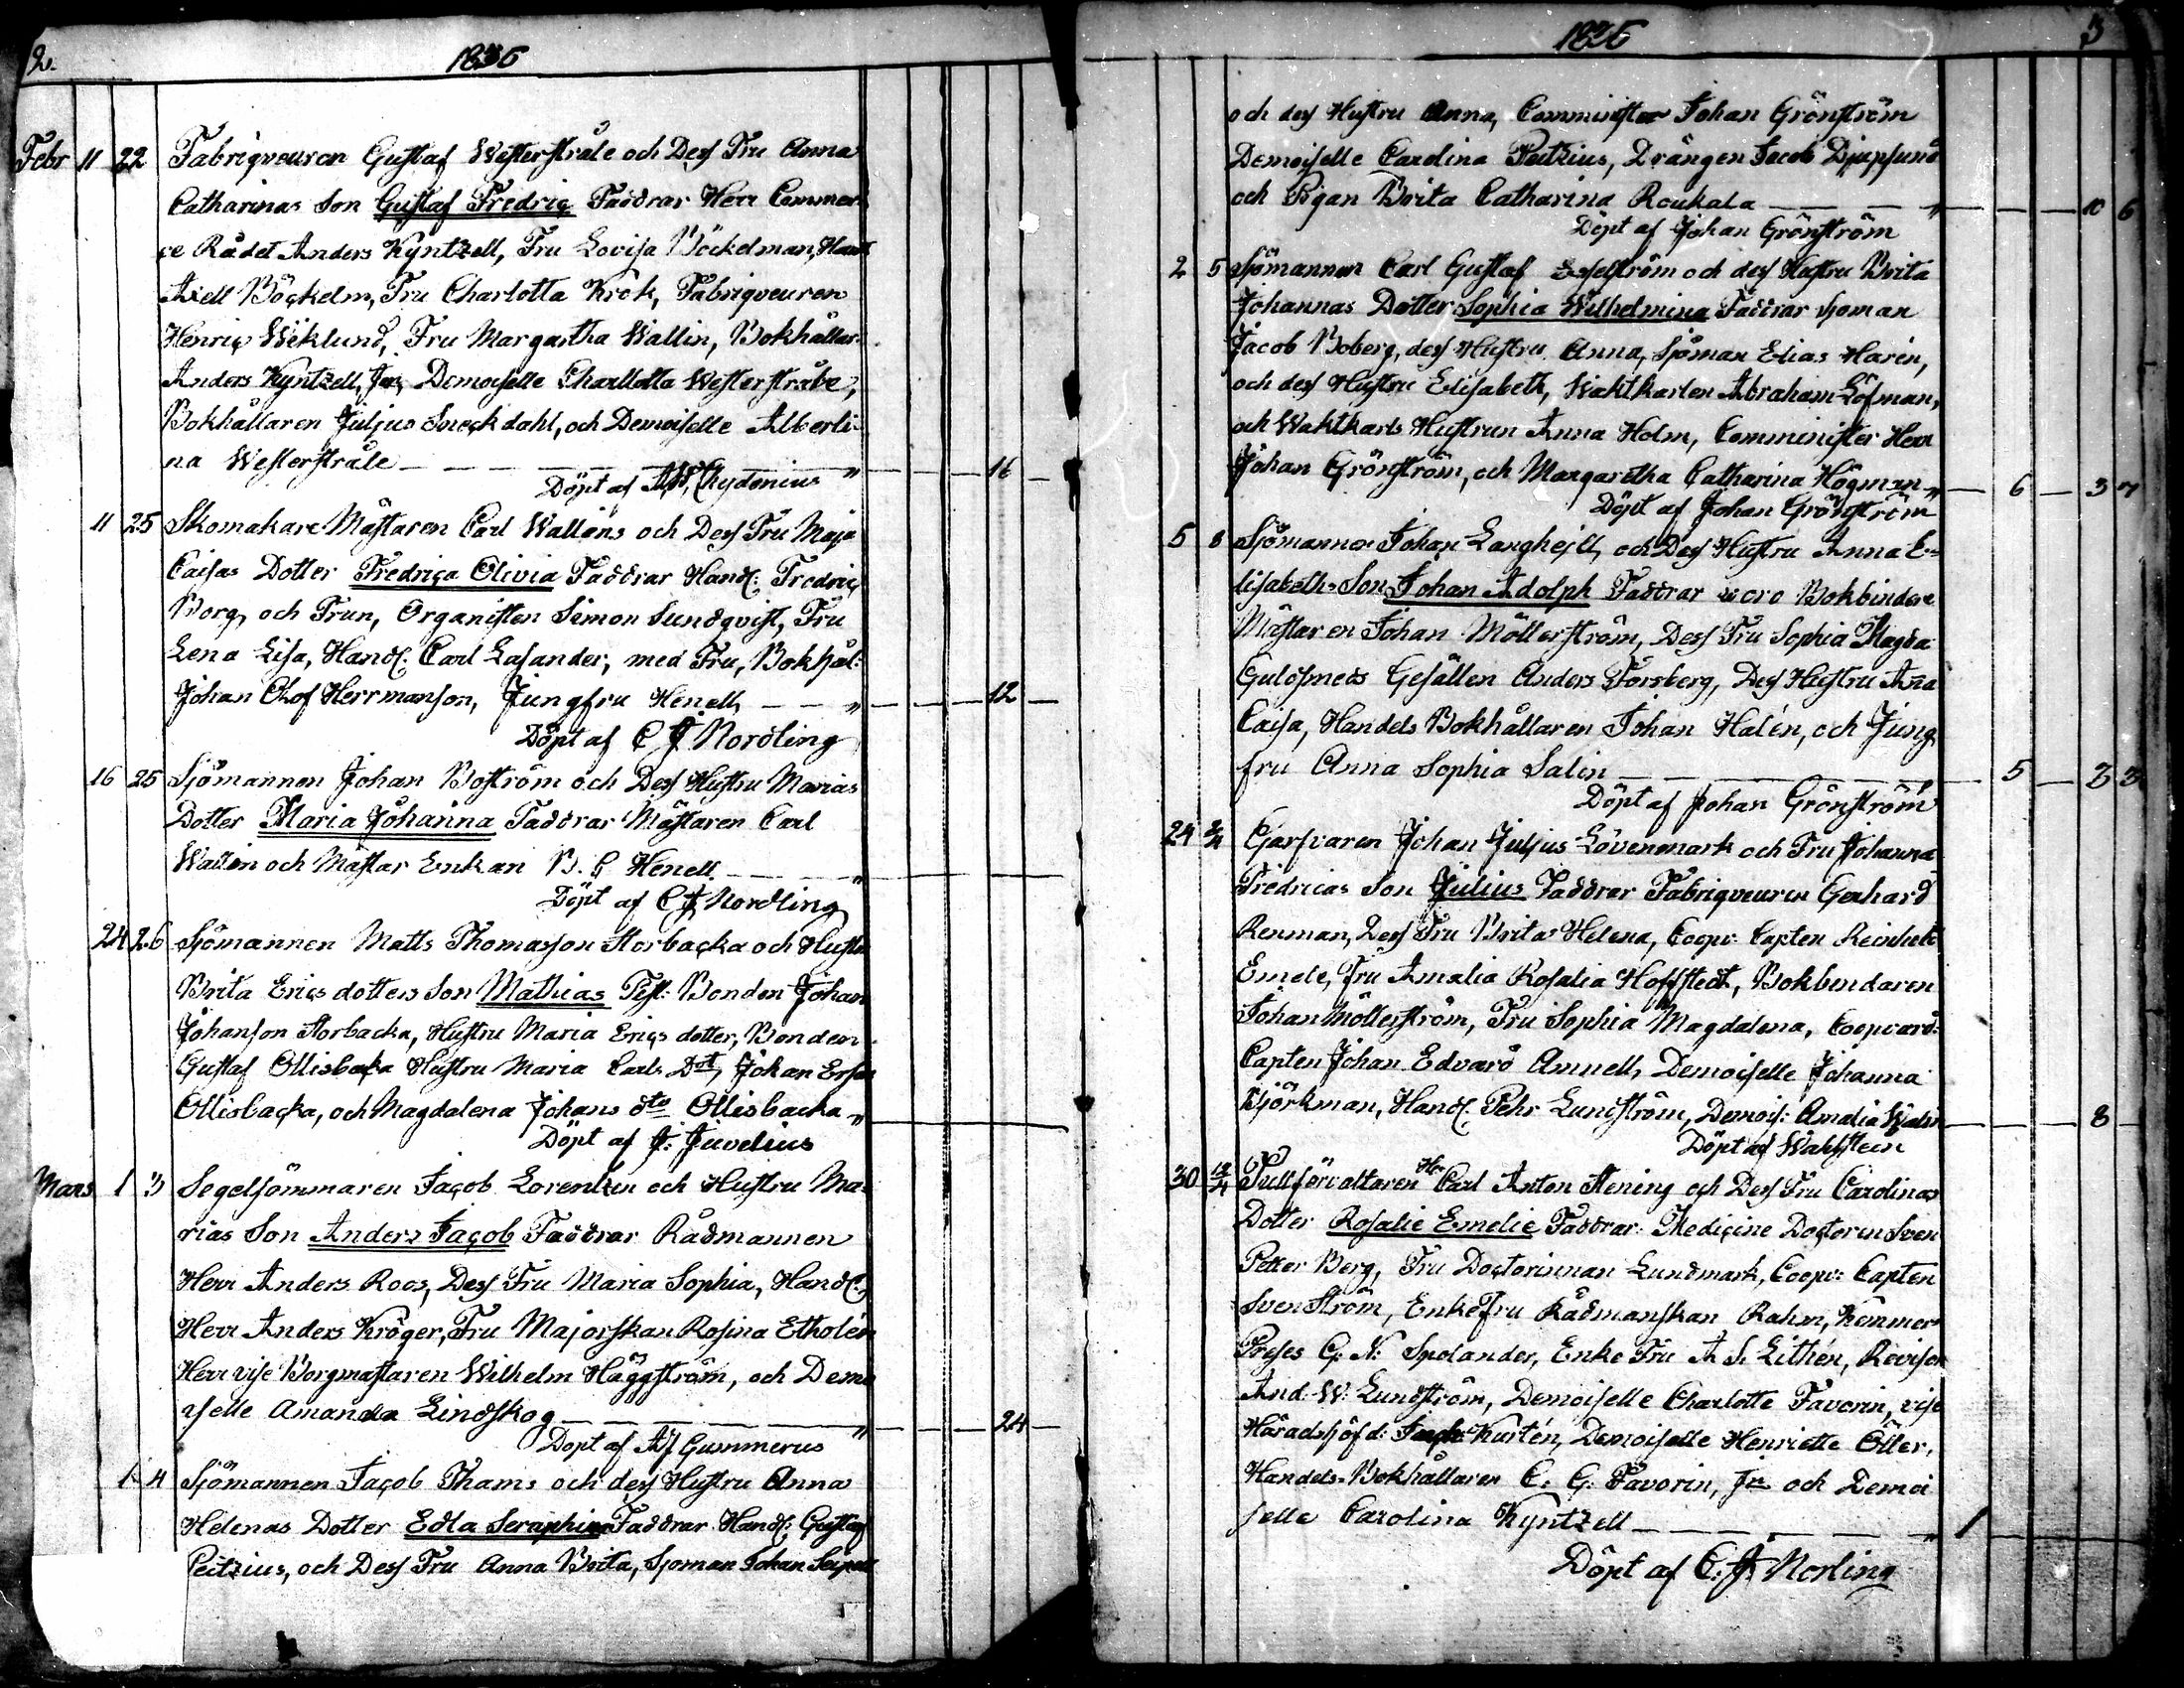 2.
1836
Febr 11 22 Fabriqveuren Gustaf Westerstråle och Dess Fru Anna
Catharinas Son Gustaf Fredriç Faddrar Herr Commer
çe Rådet Anders Kyntzell, Fru Lovisa Böckelman,
Axell Böçkelm, Fru Charlotta Krok, Fabriqveuren
Henriç Wiklund, Fru Margartha Wallin, Bokhållar.
Anders Kyntzell, Demoiselle Charllotta Westerstråle,
Bokhållaren Juljus Sneçkdahl, och Demoiselle Alberti-
na Westerstråle — — — " 16 —
Döpt af Chydenius
11 25 Skomakare Mästaren Carl Walléns och Dess Fru Maja
Caisas Dotter Fredriça Olivia Faddrar Handl: Fredriç
Borg, och Frun, Organisten Simon Sundqvist, Fru
Lena Lisa, Handl: Carl Lasander, med Fru, Bokhål:
Johan Olof Herrmanson, Jungfru Henell, — — " 12 —
Döpt af C J Nordling
16 25 Sjömannen Johan Boström och Dess Hustru Marias
Dotter Maria Johanna Faddrar Mästaren Carl
Wallén och Mästar Enkan B. G Henell — — "
Döpt af C J Nordling
24 26 Sjömannen Matts Thomasson Storbaçka och Hustru
Brita Eriçs dotters Son Mathias Test: Bonden Johan
Johanson Storbacka, Hustru Maria Eriçs dotter, Bonden
Gustaf Ollisbaka Hustru Maria Carls Dtr, Johan Ersson
Ollisbaçka, och Magdalena Johans dtr Ollisbacka "
Döpt af J: Juvelius
Mars 1 3 Segelsömmaren Jaçob Lorentzen och Hustru Ma-
rias Son Anders Jaçob Faddrar Rådmannen
Herr Anders Roos, Dess Fru Maria Sophia, Handl:
Herr Anders Kröger, Fru Majorskan Rosina Etholén
Herr vise Borgmästaren Wilhelm Häggström, och Demo
iselle Amanda Lindskog — — — " 24 —
Döpt af Gummerus
1 4 Sjömannen Jaçob Thams och dess Hustru Anna
Helenas Dotter Edla Seraphina Faddrar Handl: Gustaf
Peitzius, och Dess Fru Anna Brita, Sjöman Johan
1836
3
och dess Hustru Anna, Comminister Johan Grönström
Demoiselle Carolina Peitzius, Drängen Jacob Djupsund
och Pigan Brita Catharina Roukala — — — " 10 6
Döpt af Johan Grönström
2 5 Sjömannen Carl Gustaf Esselström och dess Hustru Brita
Johannas Dotter Sophia Wilhelmina Faddrar Sjöman
Jacob Boberg, dess Hustru Anna, Sjöman Elias Harin,
och dess Hustru Elisabeth, Waktkarlen Abraham Löfman,
och Waktkarls Hustrun Anna Holm, Comminister Herr
Johan Grönström, och Margaretha Catharina Högman " — 6 — 3 7
Döpt af Johan Grönström
5 8 Sjömannen Johan Langhejll, och Dess Hustru Anna E-
lisabeths Son Johan Adolph Faddrar woro Bokbindare
Mästaren Johan Möllerström, Dess Fru Sophia Magda
Guldsmeds Gesällen Anders Forsberg, Dess Hustru Ana
Caisa, Handels Bokhållaren Johan Halén, och Jung
fru Anna Sophia Salin — — — " 5 — 3 3
Döpt af Johan Grönström
24 2/4 Garfvaren Johan Juljus Lövenmark och Fru Johanna
Fredricas Son Julius Faddrar Fabriqveuren Gerhard
Renman, Dess Fru Brita Helena, Coopv: Capten Reinholt
Emele, Fru Amalia Rosalia Hoffstedt, Bokbindaren
Johan Möllerström, Fru Sophia Magdalena, Coopvard:
Capten Johan Edvard Amnell, Demoiselle Johanna
Björkman, Handl: Pehr Lundström, Demois: Amalia — — 8 —
Döpt af Wahlstein
30 12/4 Tullförvaltaren Hr Carl Anton Stening och Dess Fru Carolinas
Dotter Rosalie Emelie Faddrar: Mediçine Doçtoren Sven
Petter Berg, Fru Doçtorinnan Lundmark, Coopv: Capten
Sven Ström, Enkefru Rådmanskan Rahm, Kemmer
Preses G: N: Spolander, Enke Fru A S. Lithén, Revisor
And: W: Lundström, Demoiselle Charlotte Favorin, vise
Häradshöfd: Kurtén, Demoiselle Henriette Öller,
Handels-Bokhållaren C: G: Favorin, jr och Demoi
selle Carolina Kyntzell — — — " 1
Döpt af C. J. Norling